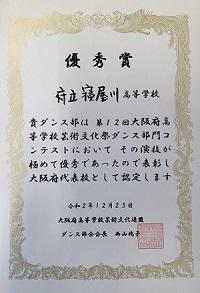 優秀賞
府立寝屋川高等学校
貴ダンス部は第12回大阪府高
等学校芸術文化祭ダンス部門コ
ンテストにおいて その演技が
極めて優秀であったので表彰し
大阪府代表校として認定します
令和2年12月25日
大阪府高等学校芸術文化連盟
ダンス部会会長 西山純子